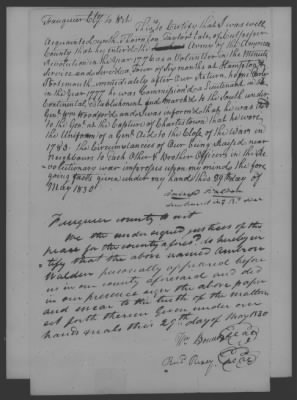 Fauquier Cty to Wit
This is to Certify that I was well
Acquainted with Thornton Taylor late of Culpeper
County that he entered the Army of the American
Revolution in the Year 177 as a Volunteer in the Minute
Service and served a Tour of months at Hampton &
Portsmouth, immediately after our return home early
in the Year 1777 he was Commissioned a Lieutenant in the
Continental Establishment and Marched to the South under
Genl Wm Woodford and was informed that he was
to the Genl at the Capture of Charlestown that he wore
the Uniform of a Genl Aid to the Close of the War in
1783. the Circumstances of Our being Raised near
neighbours to each Other & brother Officers in the Re
volutionary war impresses upon my mind the fore
going facts given under my hand this 29 day of
May 1830
Ambrose Walden
Fauquier county to wit
We the undersigned justices of the
peace for the county aforesd do hereby cer
tify that the above named Ambrose
Walden personally appeared before
us in our county aforesaid and did
in our presence sign the above paper
and swear to the truth of the matters
set forth therein Given under our
hands & seals this 29th day of May 1830
Wm